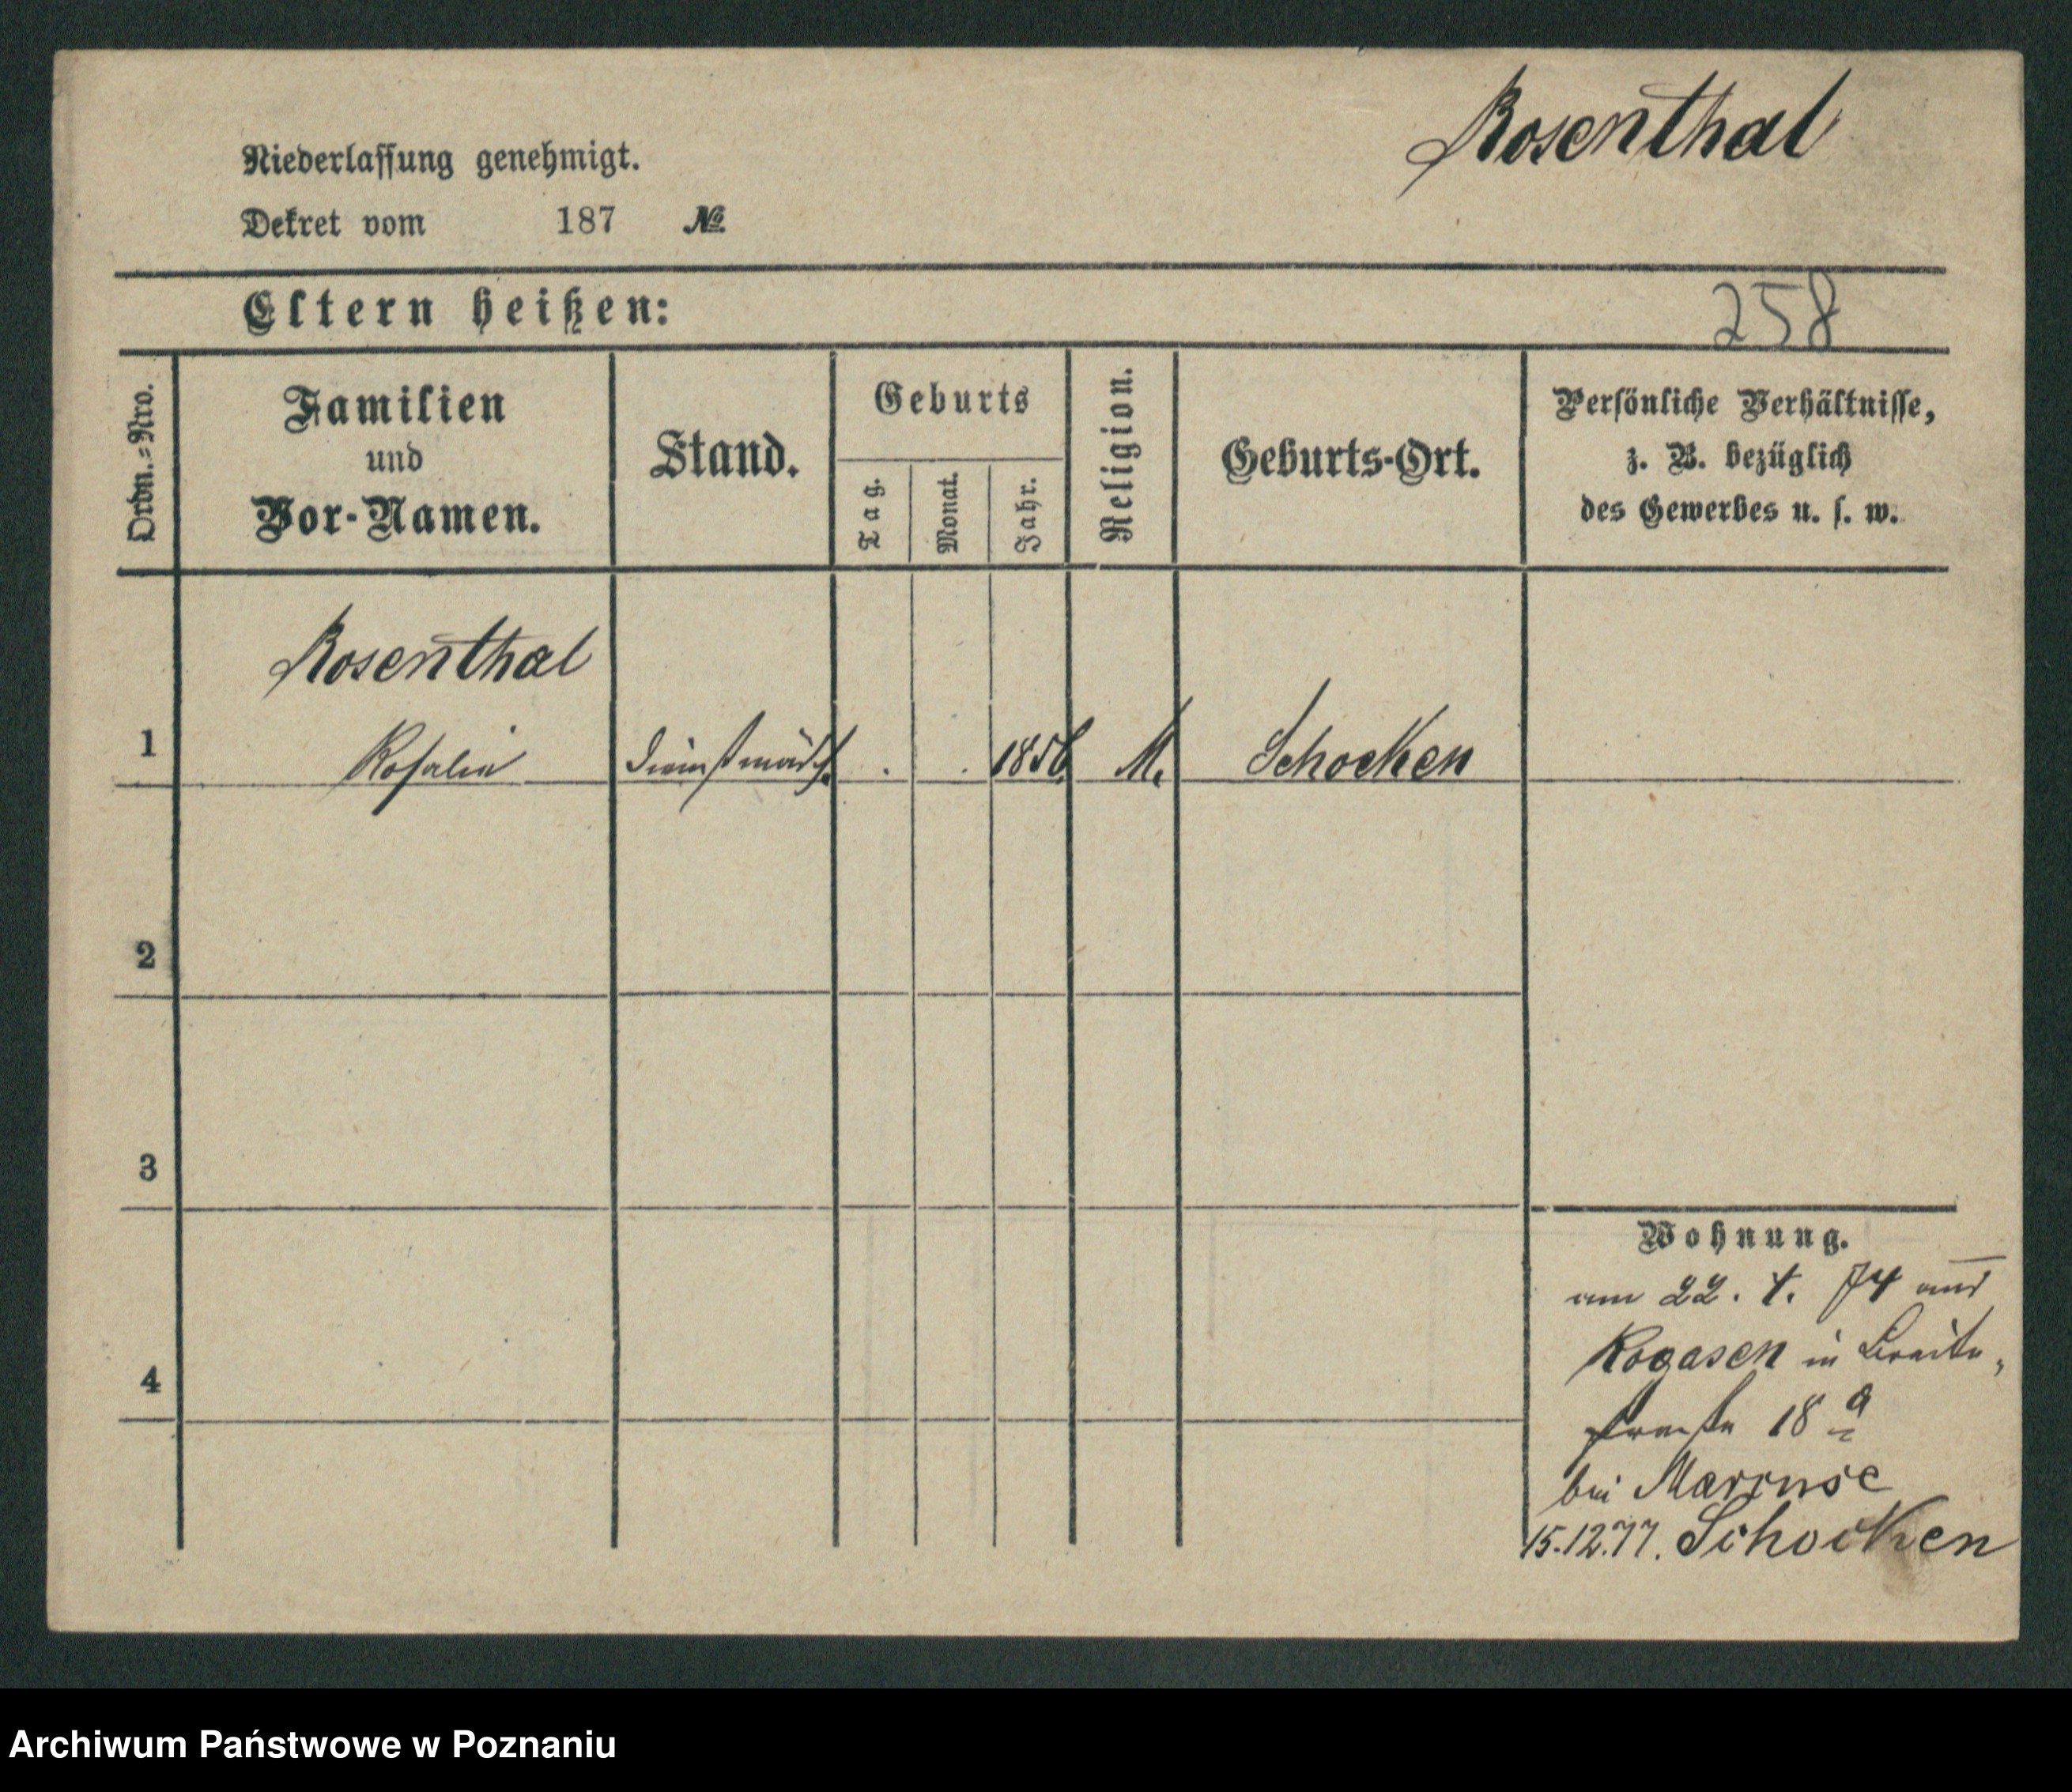 Rosenthal
Niederlassung genehmigt.
Dekret vom 187 №
Eltern heißen:
258
Ordn.-Nro.
Familien
und
Vor-Namen.
Stand.
Geburts
Tag.
Monat.
Jahr.
Religion.
Geburts-Ort.
Persönliche Verhältnisse,
z. B. bezüglich
des Gewerbes u. s. w.
Rosenthal
1 Rosalie Dienstmädch. . . 1856 M. Schocken
2
3
4
Wohnung.
am 22. 4. 74 aus
Rogasen in Breite-
straße 18 a
bei Marcuse
15.12.77. Schocken
Archiwum Państwowe w Poznaniu